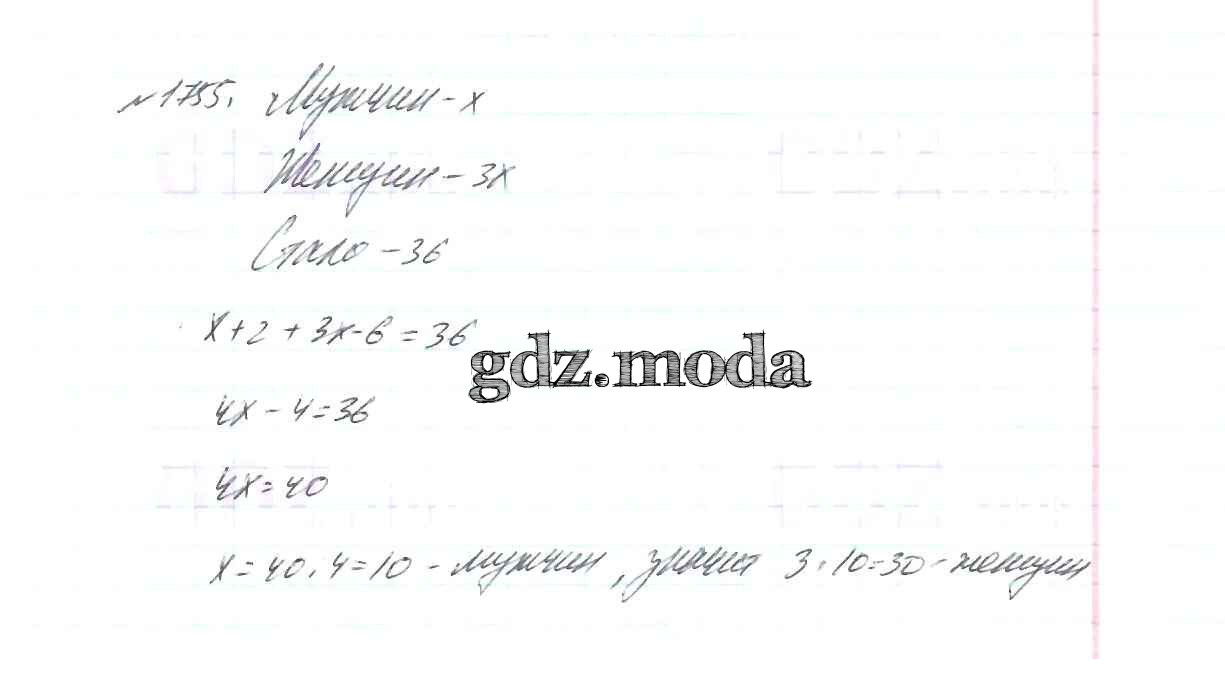 №1755. Мужчин - x
Женщин - 3x
Стало - 36
x + 2 + 3x - 6 = 36
gdz.moda
4x - 4 = 36
4x = 40
x = 40 : 4 = 10 - мужчин, значит 3 · 10 = 30 - женщин